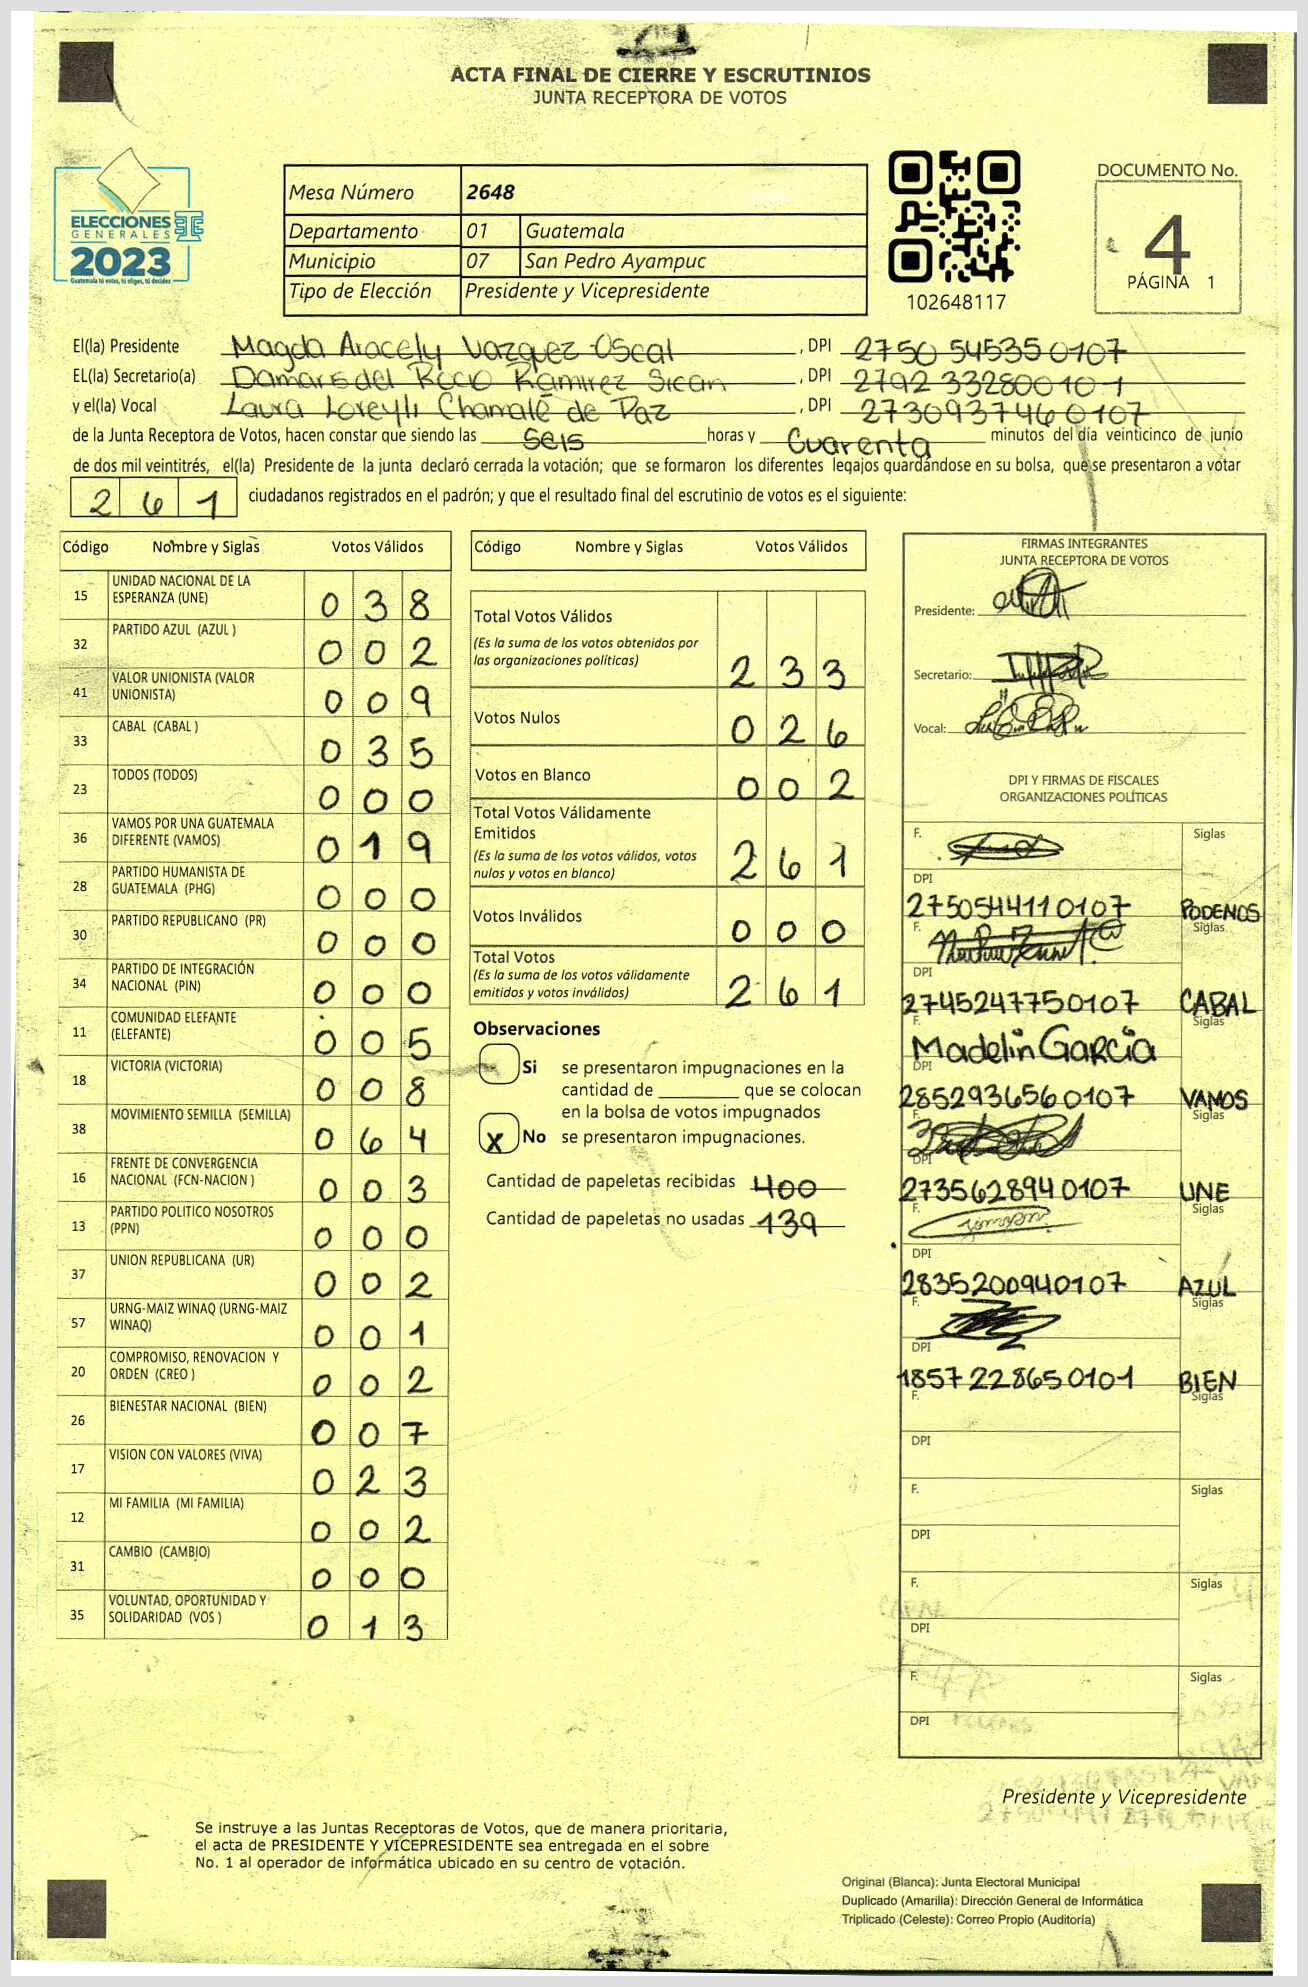 ACTA FINAL DE CIERRE Y ESCRUTINIOS
JUNTA RECEPTORA DE VOTOS
ELECCIONES
GENERALES
2023
Guatemala tú entras, tú eliges, tú decides
Mesa Número 2648
Departamento 01 Guatemala
Municipio 07 San Pedro Ayampuc
Tipo de Elección Presidente y Vicepresidente
102648117
DOCUMENTO No.
4
PÁGINA 1
El(la) Presidente Magda Aracely Vazquez Oscal, DPI 2750 54535 0107
EL(la) Secretario(a) Damaris del Rocio Ramirez Sican, DPI 2792 33280 0101
y el(la) Vocal Laura Loreyli Chamalé de Paz, DPI 2730937460107
de la Junta Receptora de Votos, hacen constar que siendo las seis horas y Cuarenta minutos del día veinticinco de junio
de dos mil veintitrés, el(la) Presidente de la junta declaró cerrada la votación; que se formaron los diferentes legajos guardándose en su bolsa, que se presentaron a votar
261 ciudadanos registrados en el padrón; y que el resultado final del escrutinio de votos es el siguiente:
Código Nombre y Siglas Votos Válidos
15 UNIDAD NACIONAL DE LA ESPERANZA (UNE) 038
32 PARTIDO AZUL (AZUL ) 002
41 VALOR UNIONISTA (VALOR UNIONISTA) 009
33 CABAL (CABAL ) 035
23 TODOS (TODOS) 000
36 VAMOS POR UNA GUATEMALA DIFERENTE (VAMOS) 019
28 PARTIDO HUMANISTA DE GUATEMALA (PHG) 000
30 PARTIDO REPUBLICANO (PR) 000
34 PARTIDO DE INTEGRACIÓN NACIONAL (PIN) 000
11 COMUNIDAD ELEFANTE (ELEFANTE) 005
18 VICTORIA (VICTORIA) 008
38 MOVIMIENTO SEMILLA (SEMILLA) 064
16 FRENTE DE CONVERGENCIA NACIONAL (FCN-NACION ) 003
13 PARTIDO POLITICO NOSOTROS (PPN) 000
37 UNION REPUBLICANA (UR) 002
57 URNG-MAIZ WINAQ (URNG-MAIZ WINAQ) 001
20 COMPROMISO, RENOVACION Y ORDEN (CREO ) 002
26 BIENESTAR NACIONAL (BIEN) 007
17 VISION CON VALORES (VIVA) 023
12 MI FAMILIA (MI FAMILIA) 002
31 CAMBIO (CAMBIO) 000
35 VOLUNTAD, OPORTUNIDAD Y SOLIDARIDAD (VOS ) 013
Código Nombre y Siglas Votos Válidos
Total Votos Válidos
(Es la suma de los votos obtenidos por
las organizaciones políticas) 233
Votos Nulos 026
Votos en Blanco 002
Total Votos Válidamente
Emitidos
(Es la suma de los votos válidos, votos
nulos y votos en blanco) 261
Votos Inválidos 000
Total Votos
(Es la suma de los votos válidamente
emitidos y votos inválidos) 261
Observaciones
Si se presentaron impugnaciones en la
cantidad de ________ que se colocan
en la bolsa de votos impugnados
X No se presentaron impugnaciones.
Cantidad de papeletas recibidas 400
Cantidad de papeletas no usadas 139
FIRMAS INTEGRANTES
JUNTA RECEPTORA DE VOTOS
Presidente:
Secretario:
Vocal:
DPI Y FIRMAS DE FISCALES
ORGANIZACIONES POLÍTICAS
F. Siglas
DPI
2750544110107 PODEMOS
F. Siglas
DPI
2745247750107 CABAL
F. Siglas
Madelin García
DPI
2852936560107 VAMOS
F. Siglas
DPI
2735628940107 UNE
F. Siglas
DPI
2835200940107 AZUL
F. Siglas
DPI
1857228650101 BIEN
F. Siglas
DPI
F. Siglas
DPI
F. Siglas
DPI
F. Siglas
DPI
Presidente y Vicepresidente
Se instruye a las Juntas Receptoras de Votos, que de manera prioritaria,
el acta de PRESIDENTE Y VICEPRESIDENTE sea entregada en el sobre
No. 1 al operador de informática ubicado en su centro de votación.
Original (Blanca): Junta Electoral Municipal
Duplicado (Amarilla): Dirección General de Informática
Triplicado (Celeste): Correo Propio (Auditoría)